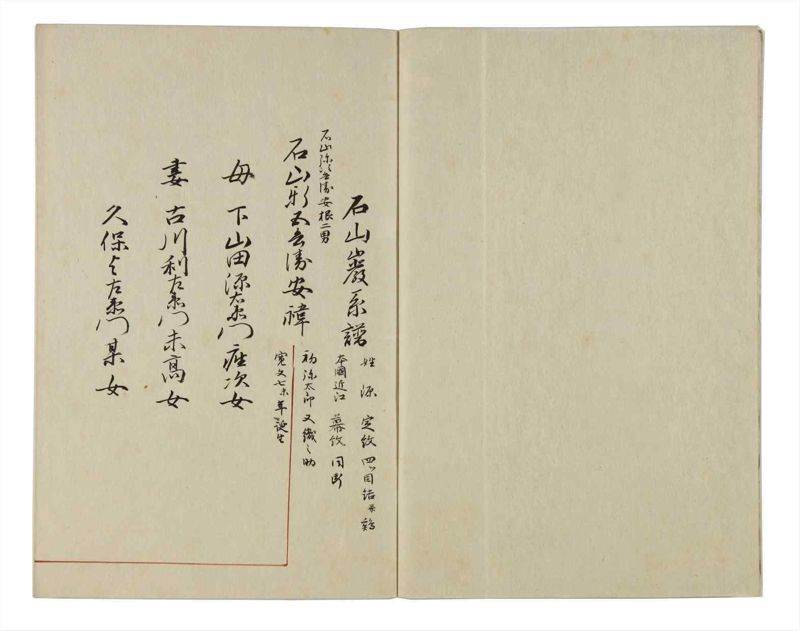 石山巖系譜
姓 源 定紋 四ッ目結并
本國近江 幕紋 同断
石山弥 兵衛安根二男
石山新五兵衛安禕
初弥太郎 又織之助
寛文七未年誕生
母 下山田源右衛門 次女
妻 古川利左衛門未高女
久保与左衛門某女